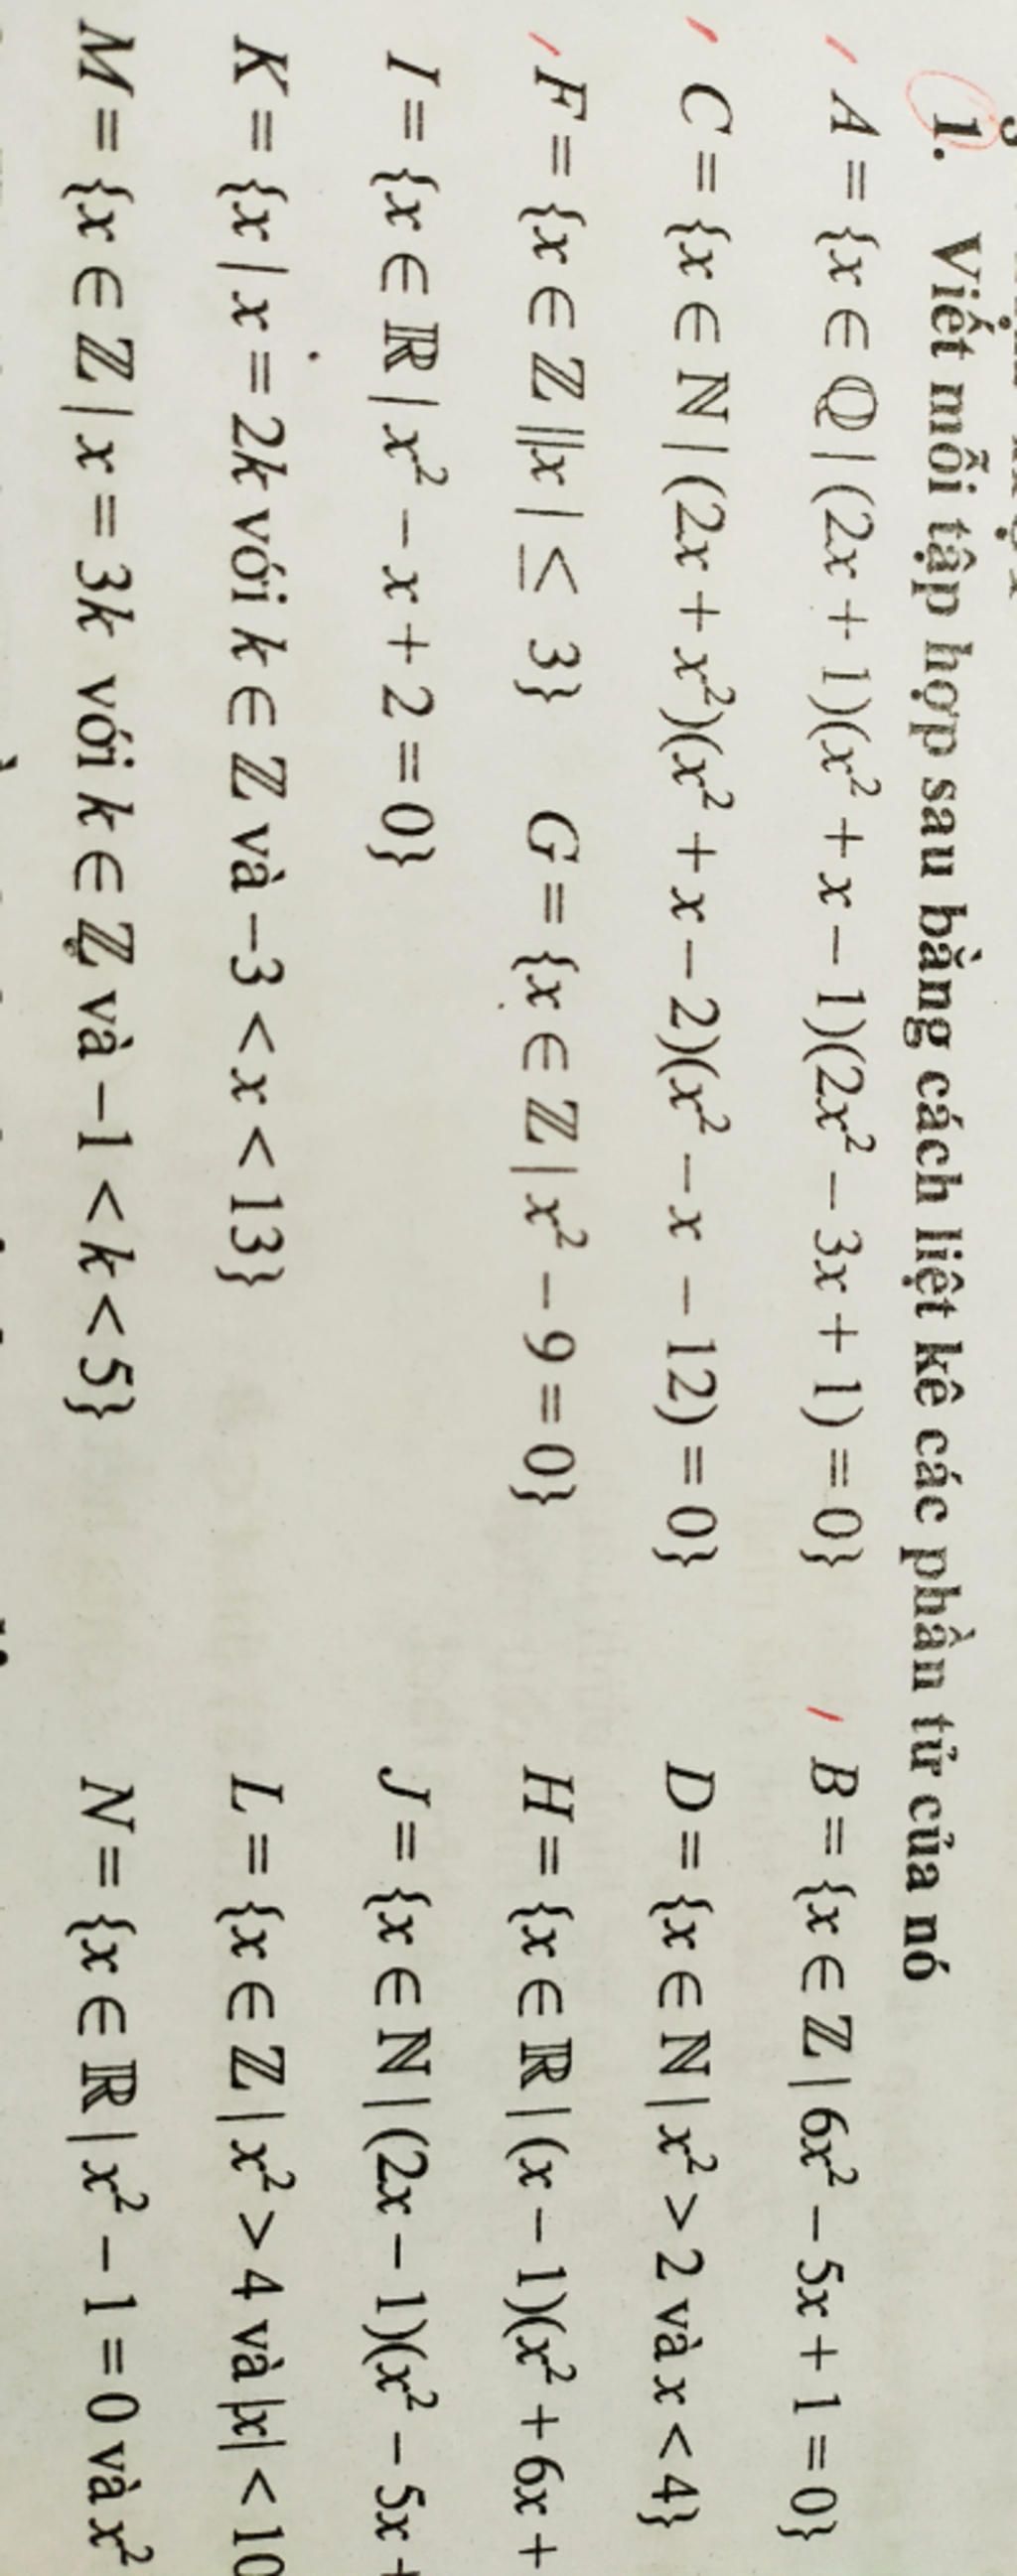 1. Viết mỗi tập hợp sau bằng cách liệt kê các phần tử của nó
A = {x ∈ ℚ | (2x + 1)(x² + x − 1)(2x² − 3x + 1) = 0} B = {x ∈ ℤ | 6x² − 5x + 1 = 0}
C = {x ∈ ℕ | (2x + x²)(x² + x − 2)(x² − x − 12) = 0} D = {x ∈ ℕ | x² > 2 và x < 4}
F = {x ∈ ℤ ||x | ≤ 3} G = {x ∈ ℤ | x² − 9 = 0} H = {x ∈ ℝ | (x − 1)(x² + 6x +
I = {x ∈ ℝ | x² − x + 2 = 0} J = {x ∈ ℕ | (2x − 1)(x² − 5x +
K = {x | x = 2k với k ∈ ℤ và −3 < x < 13} L = {x ∈ ℤ | x² > 4 và |x| < 10
M = {x ∈ ℤ | x = 3k với k ∈ ℤ và −1 < k < 5} N = {x ∈ ℝ | x² − 1 = 0 và x²